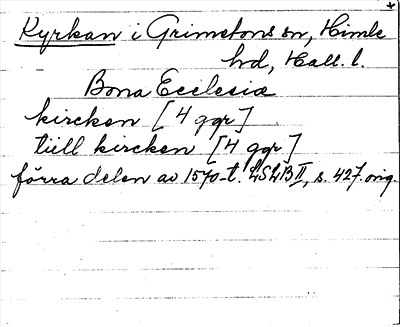 Kyrkan i Grimetons sn, Himle
hd, Hall. l.
Bona Ecclesiæ
kircken [4 ggr]
till kircken [4 ggr]
förra delen av 1570-t. LSLB II, s. 427. orig.